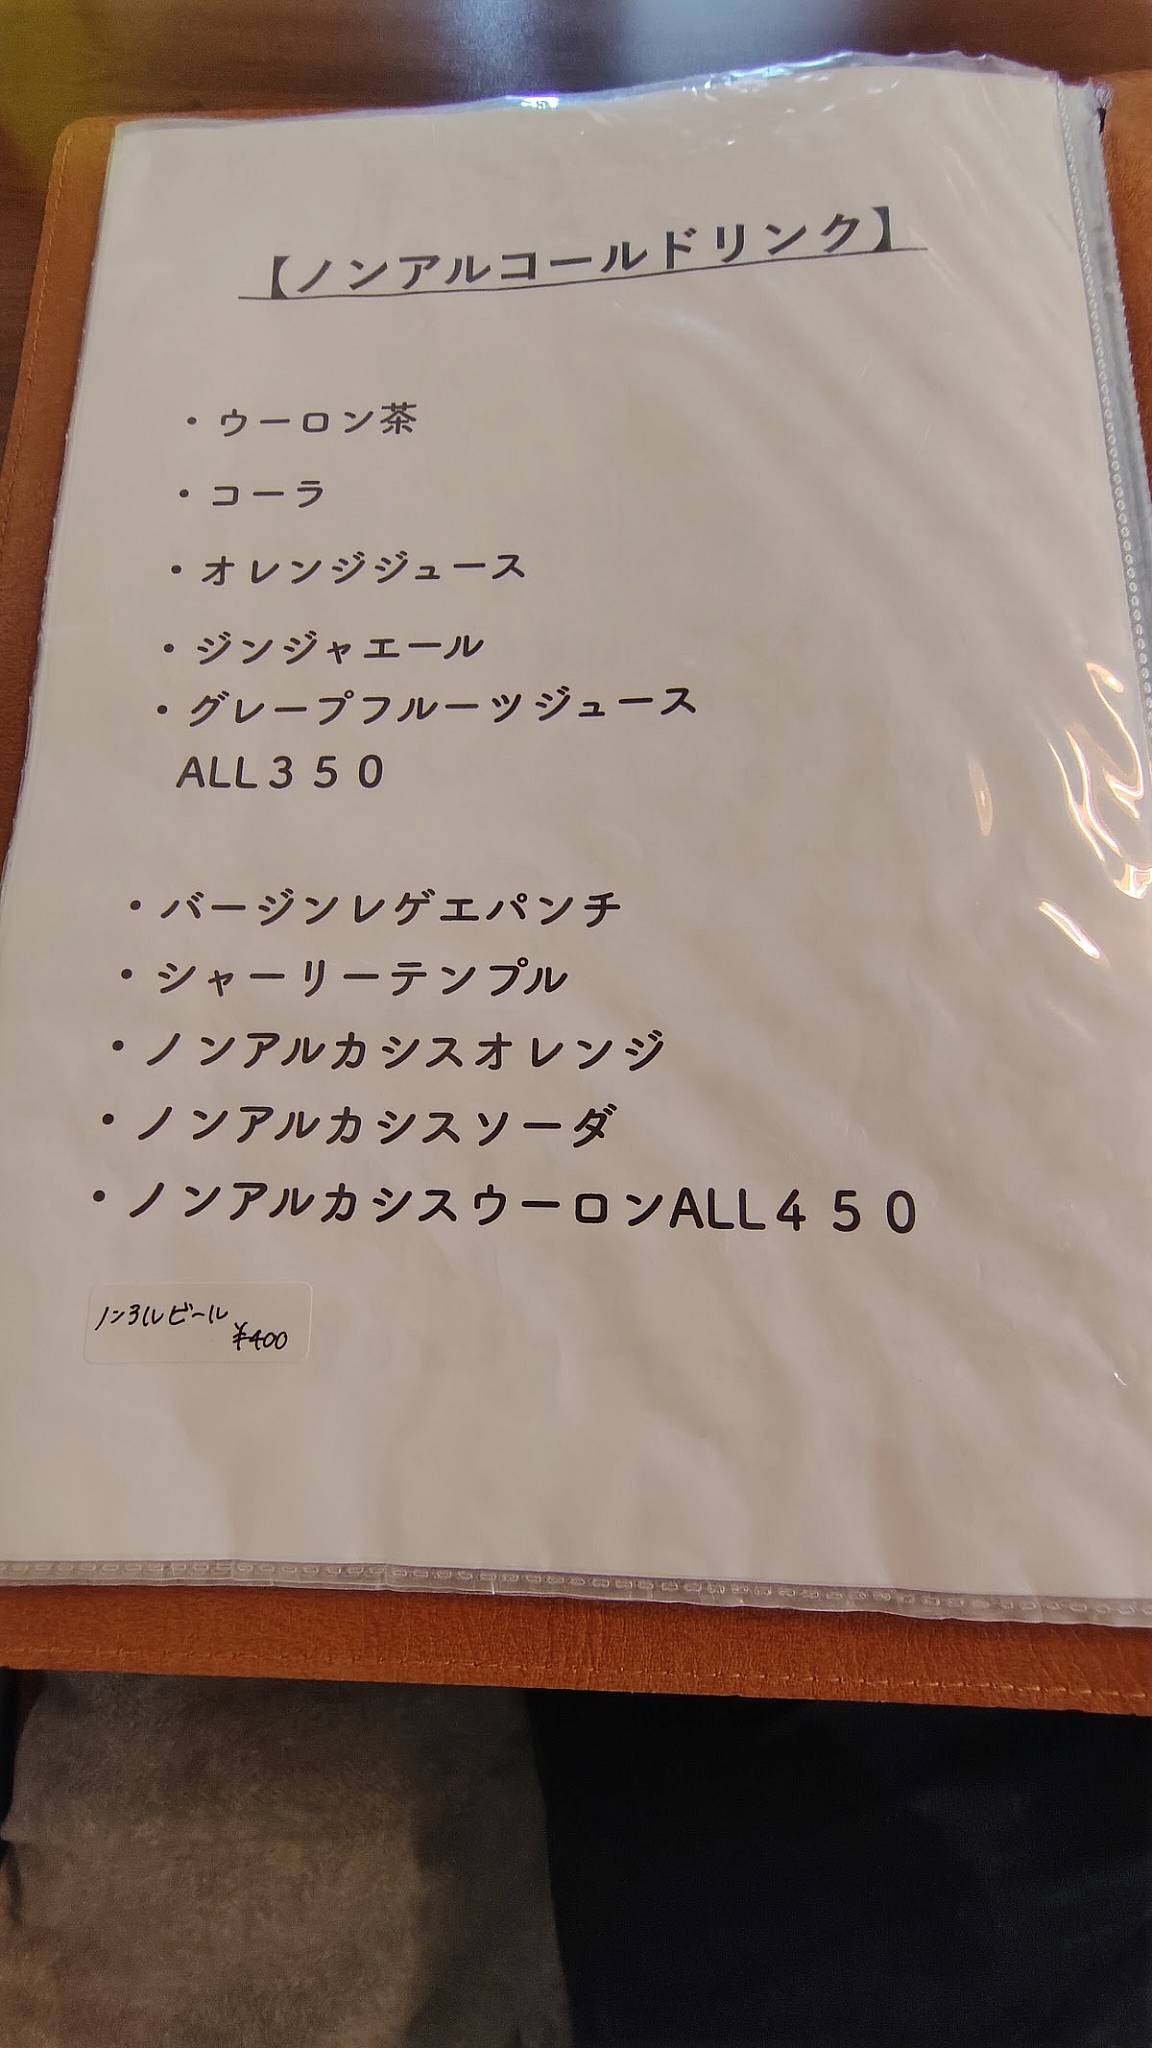 【ノンアルコールドリンク】
・ウーロン茶
・コーラ
・オレンジジュース
・ジンジャエール
・グレープフルーツジュース
ALL３５０
・バージンレゲエパンチ
・シャーリーテンプル
・ノンアルカシスオレンジ
・ノンアルカシスソーダ
・ノンアルカシスウーロンALL４５０
ノンアルビール
¥400